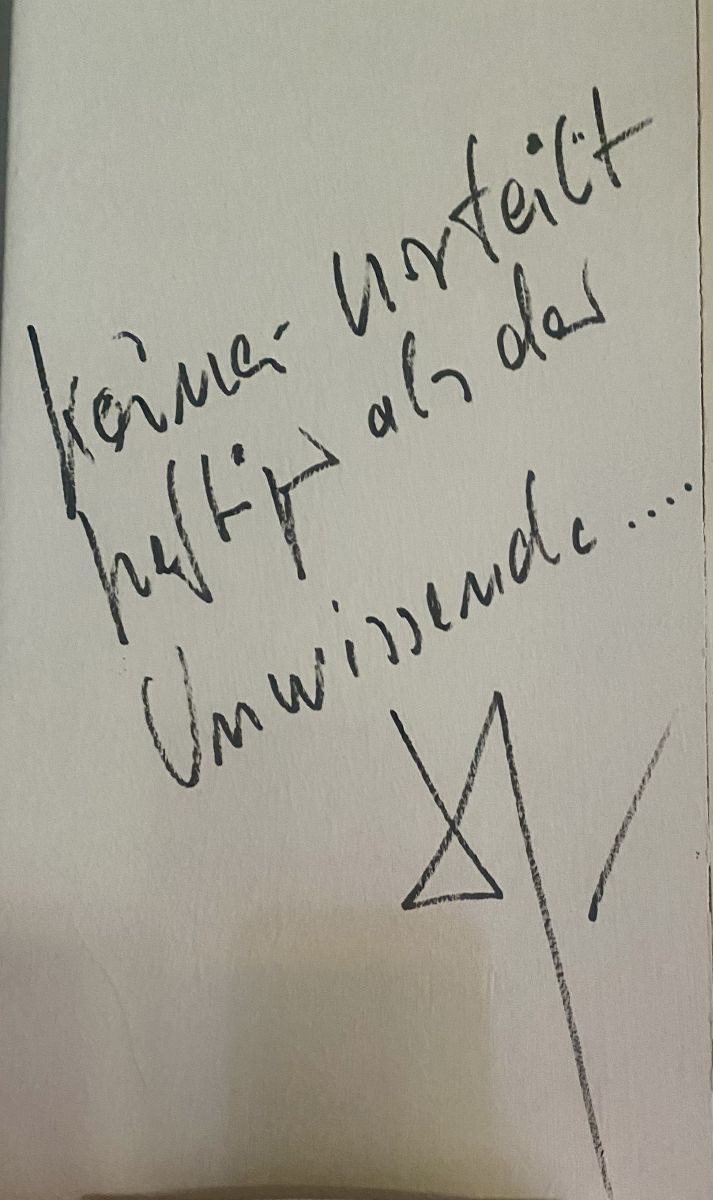 keiner urteilt
heftiger als der
Unwissende....